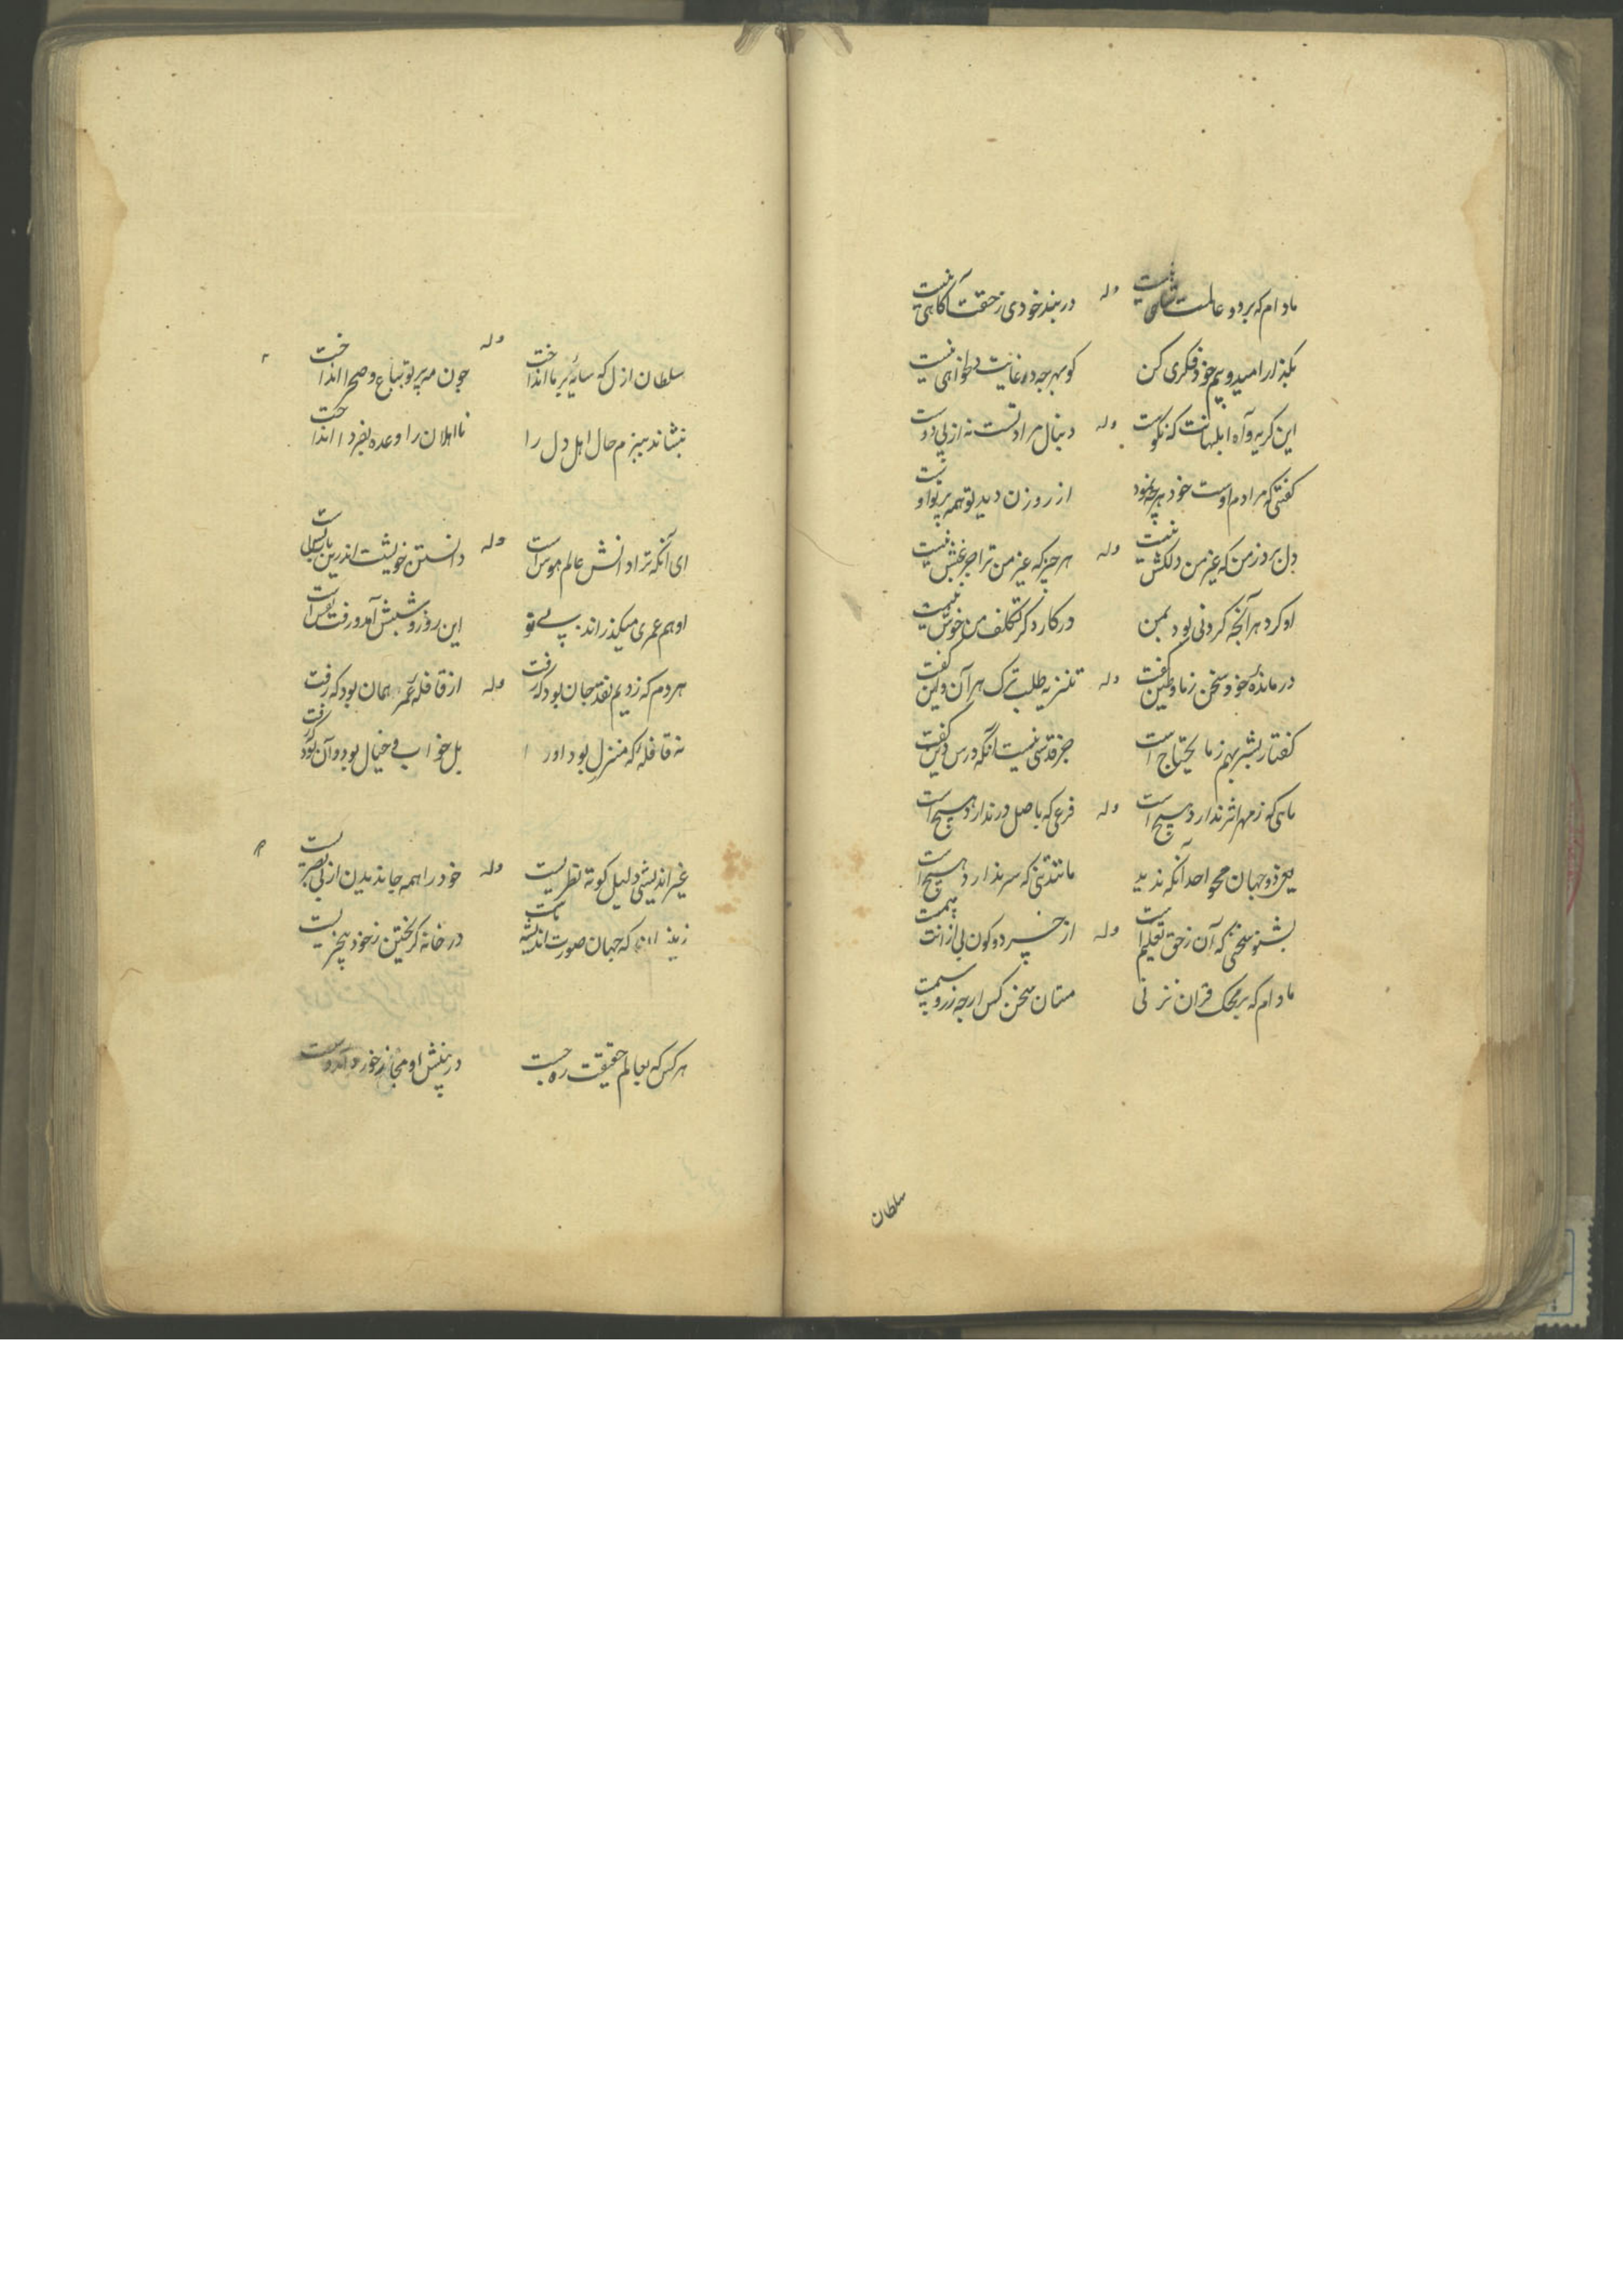 مادام که بر دو عالمت شاهی نیست وله در بند خودی ز حقت آگاهی نیست
بگذار امید و بیم خود فکری کن کو بهرچه در غایت دلخواهی نیست
این گریه و آه ابلهانت که نکوست وله دنبال مراد تست نه از پی دوست
گفتی که مرادم اوست خود هرچه نمود از روزن دید تو همه پرتو اوست
دل برد ز من که غیر من دلکش نیست وله هر چیز که غیر من ترا جز غش نیست
او کرد هر آنچه کردنی بود بمن در کار دگر تکلف من خوش نیست
در مانده خود سخن ز ما و طین گفت وله تنزیه طلب ترک هر آن و این گفت
گفتار بشر بهم ز ما یحتاج است جز قدسی نیست آنکه درس دین گفت
ماهی که ز مهر اثر ندارد هیچ است وله فرعی که باصل در ندارد هیچ است
یعنی دو جهان محو احد آنکه ندید مانند تنی که سر ندارد هیچ است
بشنو سخنی که آن ز حق تعلیم است وله از خسر دو کون بی ازانت بیمست
مادام که بر محک قران نزنی مستان سخن کس ارچه زر و سیمست
سلطان
سلطان ازل که سایه بر ما انداخت وله چون مهر پرتو بباغ و صحرا انداخت
بنشاند ببزم حال اهل دل را نااهلان را وعده بفردا انداخت
ای آنکه ترا دانش عالم هوس است وله دانستن خویشت اندرین باب بس است
او هم عمری میگذراند بی تو این روز و شبش آمد و رفت نفس است
هر دم که زدیم نقد جان بود که رفت وله از قافله عمر همان بود که رفت
نه قافله که منزل بود او را بل خواب و خیال بود و آن بود که رفت
غیر اندیشی دلیل کوته نظریست وله خود را همه جا ندیدن از بی بصریست
که جهان صورت اندیشه تست در خانه گریختن ز خود بیخبریست
هر کس که بعالم حقیقت ره جست در بینش او مجاز